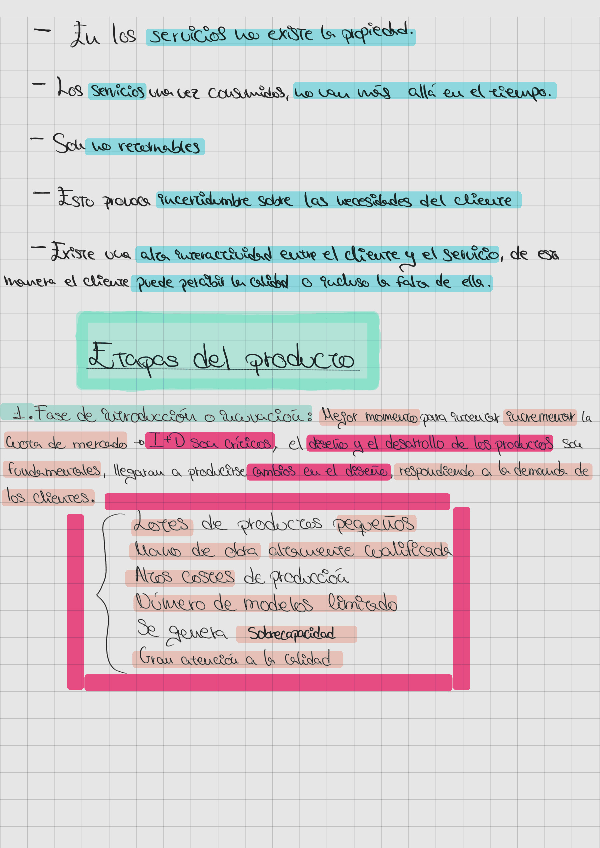 - En los servicios no existe la propiedad.
- Los servicios una vez consumidos, no van más allá en el tiempo.
- Son no retornables
- Esto provoca incertidumbre sobre las necesidades del cliente
- Existe una alta interactividad entre el cliente y el servicio, de esa
manera el cliente puede percibir la calidad o incluso la falta de ella.
Etapas del producto
1. Fase de introducción o innovación: Mejor momento para intentar incrementar la
cuota de mercado → I+D son críticos, el diseño y el desarrollo de los productos son
fundamentales, llegaran a producirse cambios en el diseño respondiendo a la demanda de
los clientes.
Lotes de productos pequeños
Mano de obra altamente cualificada
Altos costes de producción
Número de modelos limitado
Se genera sobrecapacidad
Gran atención a la calidad